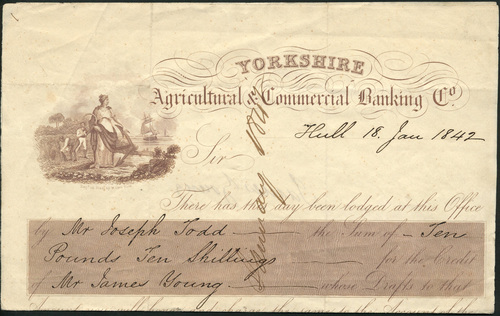 YORKSHIRE
Agricultural & Commercial Banking Co.
Hull 18 Jan 1842
Sir
There has this day been lodged at this Office
by Mr Joseph Todd the Sum of Ten
Pounds Ten Shillings for the Credit
of Mr James Young whose Drafts to that